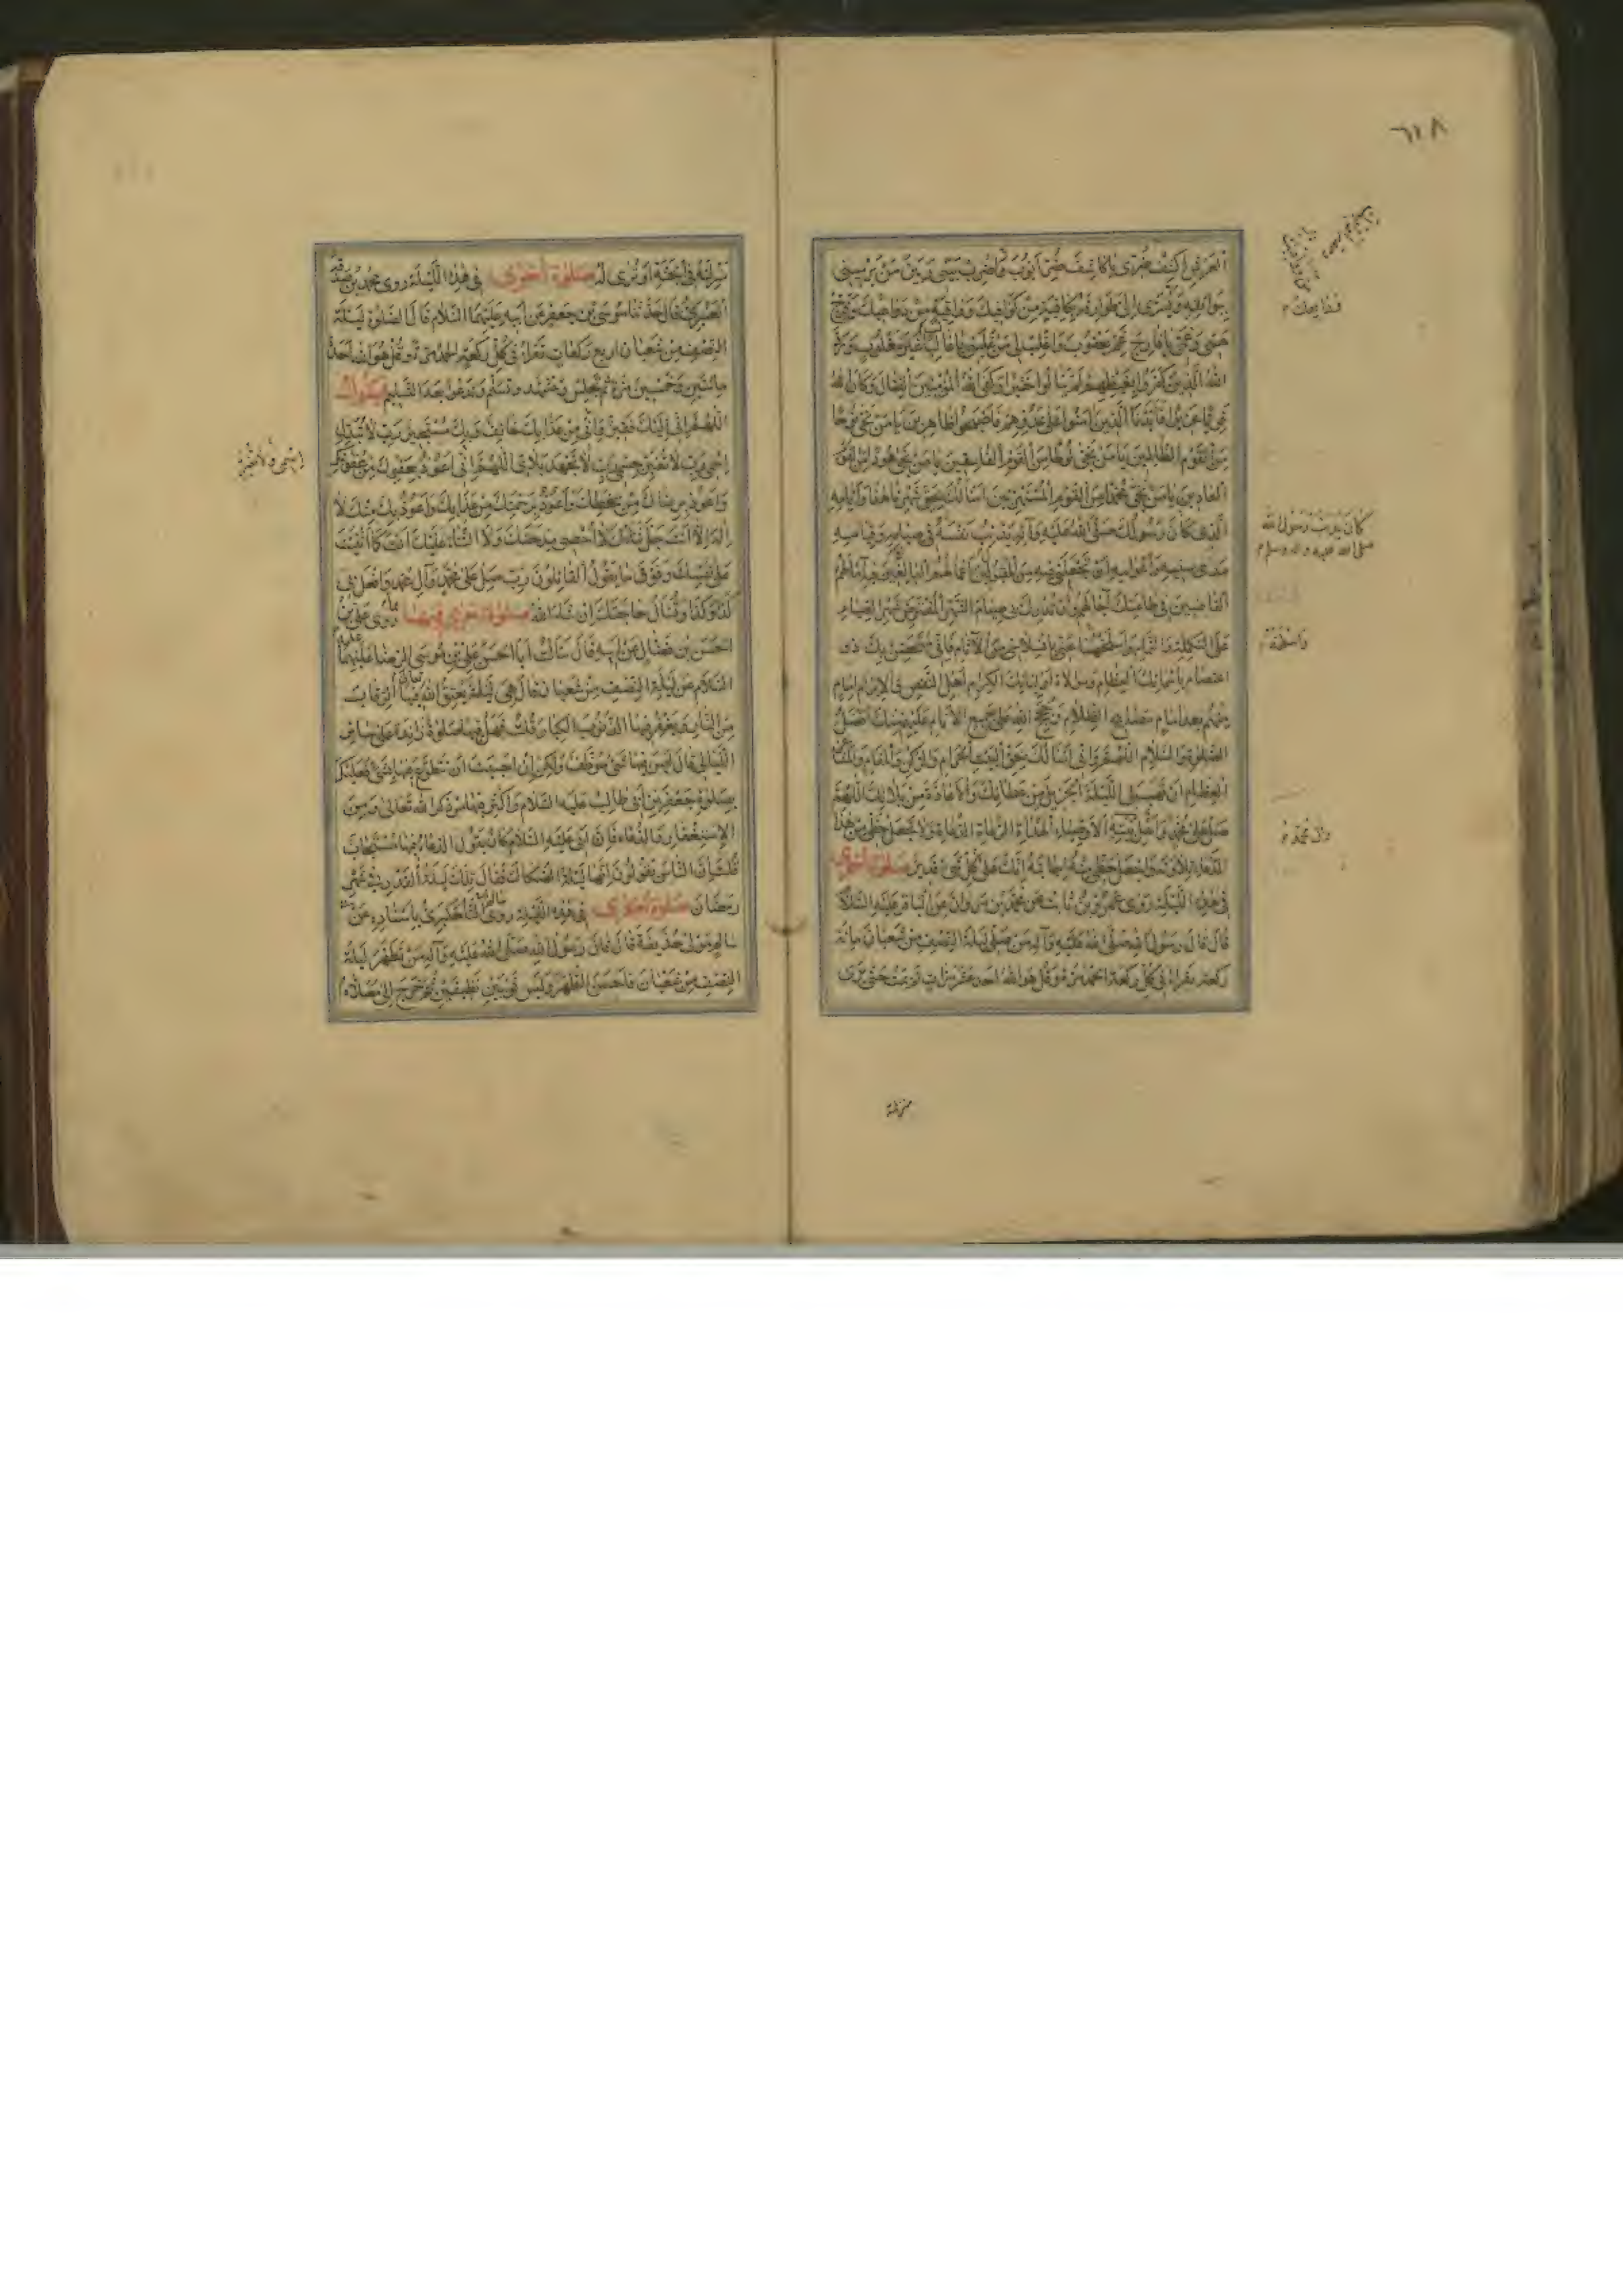 ٦٢٨
العرش اكشف ضري يا كاشف ضر ايوب واضرب بيني وبين من يريبني
هي وغمي يا فارج غم يعقوب واغلب لي من غلبني يا غالبا غير مغلوب ورد
الله الذين كفروا بغيظهم لم ينالوا خيرا وكفى الله المؤمنين القتال وكان الله
قويا عزيزا فايدنا الذين امنوا على عدوهم فاصبحوا ظاهرين يا من نجى نوحا
من القوم الظالمين يا من نجى لوطا من القوم الفاسقين يا من نجى هودا من القوم
العادين يا من نجى محمدا من القوم المستهزئين اسألك بحق شهرنا هذا وايامه
الذي كان رسولك صلى الله عليه وآله يدأب نفسه في صيامه وقيامه
مدى سنيه واعوامه ان تجعلني فيه من المقبولين اعمالهم البالغين فيه آمالهم
القاضين في طاعتك آجالهم وان تدرك بي صيام الشهر المفترض شهر الصيام
على التكملة والتمام واسلخها عني بانسلاخي من الآثام فاني متحصن بك ذو
اعتصام باسمائك العظام وموالاة اوليائك الكرام اهل النقض والابرام امام
منهم بعد امام مصابيح الظلام وحجج الله على جميع الانام عليهم منك افضل
الصلوة والسلام اللهم واني اسألك بحق البيت الحرام والركن والمقام والمشاعر
العظام ان تهب لي الليلة الجزيل من عطائك والاعاذة من بلائك اللهم
صل على محمد واهل بيته الاوصياء الهداة الدعاة ولا تجعل حظي من هذا
الدعاء تلاوته واجعل حظي منه اجابته انك على كل شيء قدير صلوة اخرى
في هذه الليلة روى عمرو بن ثابت عن محمد بن مروان عن الباقر عليه السلام
قال قال رسول الله صلى الله عليه وآله من صلى ليلة النصف من شعبان مائة
ركعة يقرأ في كل ركعة الحمد مرة وقل هو الله احد عشر مرات لم يمت حتى يرى
فدايحك
كان يدأب رسول الله
صلى الله عليه واله وسلم
واسلخه
وآل محمد
منزله
منزله في الجنة او ترى له صلوة اخرى في هذا الليلة روى محمد بن صدقة
العنبري قال حدثنا موسى بن جعفر عن ابيه عليهما السلام قال الصلوة ليلة
النصف من شعبان اربع ركعات تقرأ في كل ركعة الحمد مرة وقل هو الله احد
مائتين وخمسين مرة ثم تجلس وتتشهد وتسلم وتدعو بعد التسليم فتقول
اللهم اني اليك فقير واني من عذابك خائف وبك مستجير رب لا تبدل
اسمي رب لا تغير جسمي رب لا تجهد بلائي اللهم اني اعوذ بعفوك من عقوبتك
واعوذ برضاك من سخطك واعوذ برحمتك من عذابك واعوذ بك منك لا
اله الا انت جل ثناؤك لا احصي مدحتك ولا الثناء عليك انت كما اثنيت
على نفسك وفوق ما يقول القائلون رب صل على محمد وآل محمد وافعل بي
كذا وكذا وتسأل حاجتك ان شاء الله صلوة اخرى فيها روى علي بن
الحسن بن فضال عن ابيه قال سألت ابا الحسن علي بن موسى الرضا عليهما
السلام عن ليلة النصف من شعبان قال هي ليلة يعتق الله فيها الرقاب
من النار ويغفر فيها الذنوب الكبار قلت فهل فيها صلوة زيادة على سائر
الليالي قال ليس فيها شيء موظف ولكن ان احببت ان تتطوع فيها بشيء فعليك
بصلوة جعفر بن ابي طالب عليه السلام واكثر فيها من ذكر الله تعالى ومن
الاستغفار والدعاء فان ابي عليه السلام كان يقول الدعاء فيها مستجاب
قلت ان الناس يقولون انها ليلة الصكاك فقال تلك ليلة القدر في شهر
رمضان صلوة اخرى في هذه الليلة روى التلعكبري باسناده عن
سالم مولى حذيفة قال قال رسول الله صلى الله عليه وآله من تطهر ليلة
النصف من شعبان فاحسن الطهر ولبس ثوبين نظيفين ثم خرج الى مصلاه